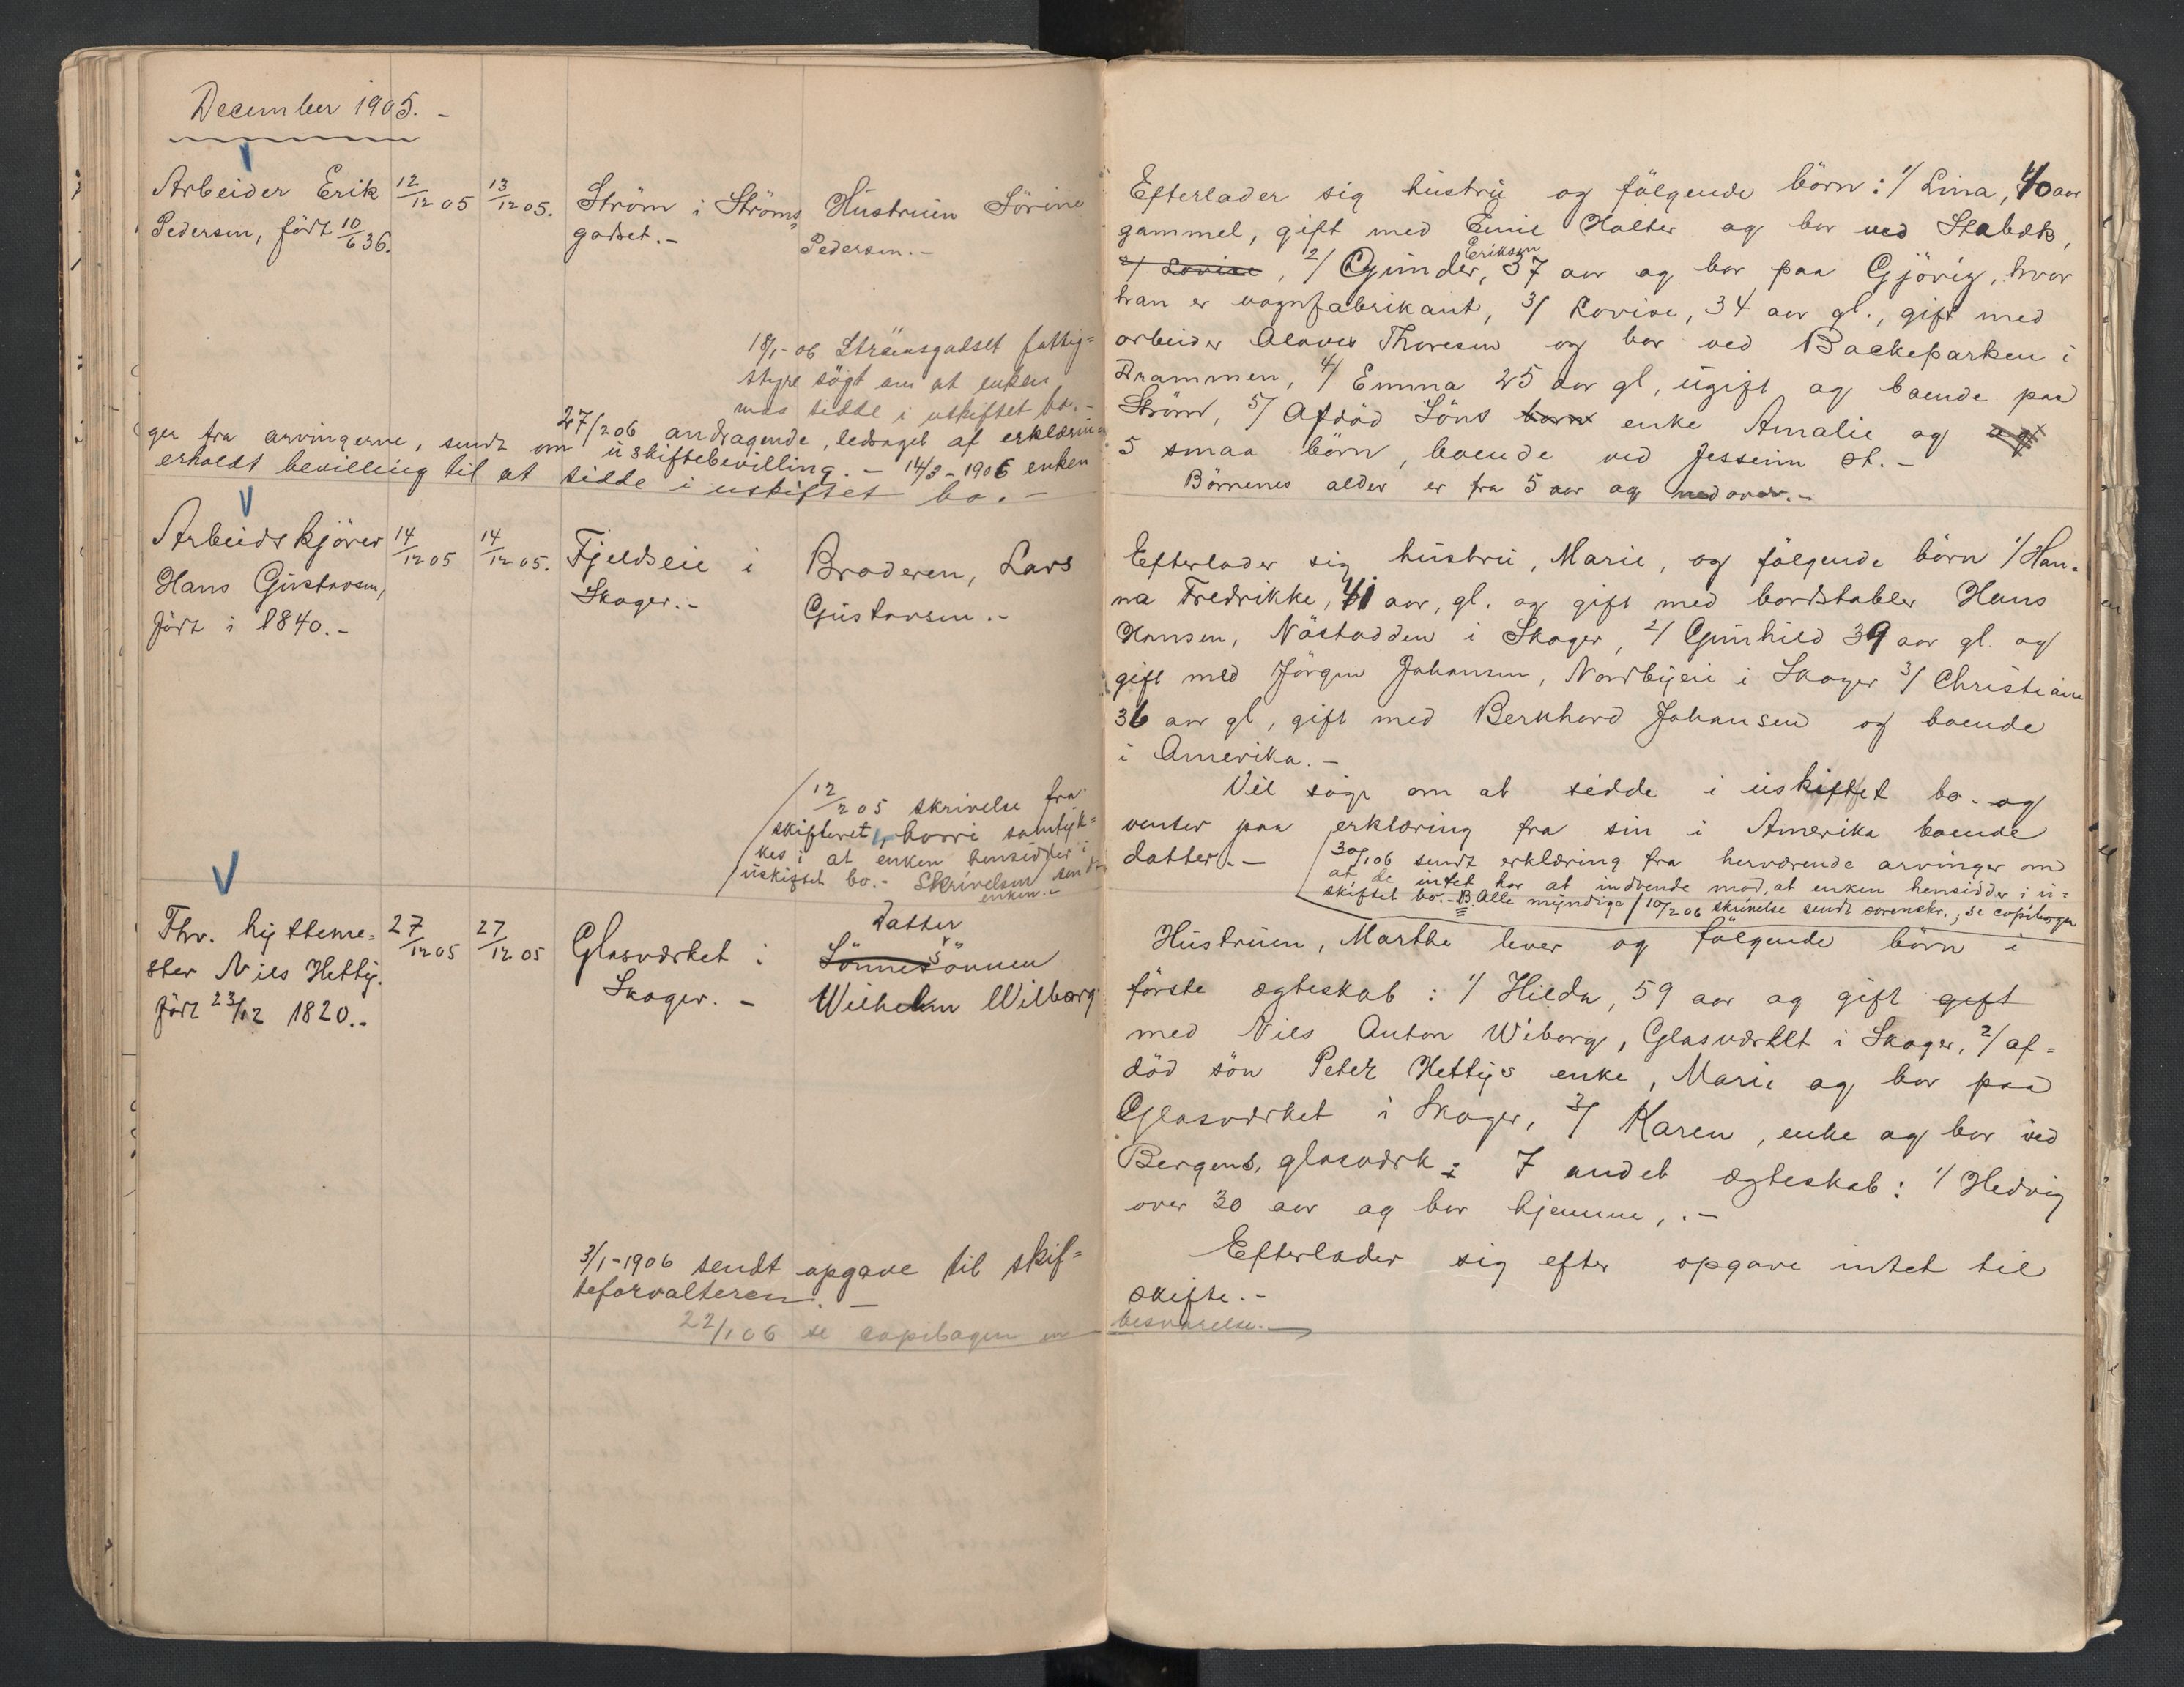 December 1905. -
Arbeider Erik
Pedersen, född 10/6 36.
12/12 05
13/12 05.
Ström i Ströms
godset. -
Hustruen Sörine
Pedersen. -
18/1-06 Strömsgodset fattig=
styre sögt om at enken
maa sidde i uskiftet bo. -
27/2 06 andragende, ledsaget af erklærin
ger fra arvingerne, sendt om uskiftebevilling. - 14/3-1906 enken
erholdt bevilling til at sidde i uskiftet bo. -
Arbeidskjörer
Hans Gustavsen,
född i 1840. -
14/12 05
14/12 05.
Fjeldseie i
Skoger. -
Broderen, Lars
Gustavsen. -
12/2 05 skrivelse fra
skifteret, hvori samtyk=
kes i at enken hensidder i
uskiftet bo. - Skrivelsen sendt
enken. -
Fhv. hytteme=
ster Nils Hettig.
född 23/12 1820. -
27/12 05
27/12 05
Glasværket i
Skoger. -
Datter
Sönnesönnen
Wilhelm Wilborg
3/1-1906 sendt opgave til skif=
teforvalteren. -
22/1 06 se copibogen en
Efterlader sig hustru og fölgende börn: 1/ Lina, 40 aar
gammel, gift med Emil Holter og bor ved Stabæk,
2/ Lovise, 2/ Gunder, 37 aar og bor paa Gjövig, hvor
Eriksen
han er vognfabrikant, 3/ Lovise, 34 aar gl., gift med
arbeider Thoresen og bor ved Backeparken i
Drammen, 4/ Emma 25 aar gl, ugift og boende paa
Ström, 5/ Afdöd Söns born enke Amalie og
5 smaa börn, boende ved Jesseim St. -
Börnenes alder er fra 5 aar og nedover. -
Efterlader sig hustru, Marie, og fölgende börn 1/ Han-
na Fredrikke, 41 aar, gl. og gift med bordstabler Hans
Hansen, Nöstodden i Skoger, 2/ Gunhild 39 aar gl. og
gift med Jörgen Johansen, Nordbyeie i Skoger 3/ Christiane
36 aar gl, gift med Bernhard Johansen og boende
i Amerika. -
Vil söge om at sidde i uskiftet bo. og
venter paa erklæring fra sin i Amerika boende
datter. -
30/1 06 sendt erklæring fra herværende arvinger om
at de intet har at indvende mod, at enken hensidder i u=
skiftet bo. - B. Alle myndige / 10/2 06 skrivelse sendt sorenskr.; se copibogen
Hustruen, Marthe lever og fölgende börn i
förste ægteskab: 1/ Hilda, 59 aar og gift gift
med Nils Anton Wiborg, Glasværket i Skoger, 2/ af=
död sön Peter Hettigs enke, Marie og bor paa
Glasværket i Skoger, 3/ Karen, enke og bor ved
Bergens, glasværk; I andet ægteskab: 1/ Hedvig
over 30 aar og bor hjemme,. -
Efterlader sig efter opgave intet til
skifte. -
besvarelse. -